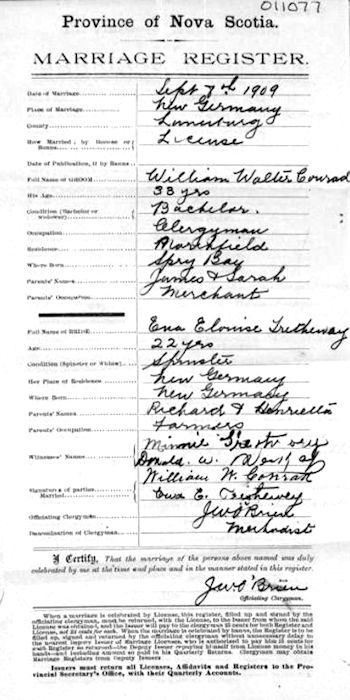 011077
Province of Nova Scotia.
MARRIAGE REGISTER.
Date of Marriage Sept 7th 1909
Place of Marriage New Germany
County Lunenburg
How Married, by License or Banns License
Date of Publication, if by Banns
Full Name of GROOM William Walter Conrad
His Age 38 yrs
Condition (Bachelor or widower) Bachelor.
Occupation Clergyman
Residence Marshfield
Where Born Spry Bay
Parents' Names James & Sarah
Parents' Occupation Merchant
Full Name of BRIDE Eva Elouise Trethewey
Age 22 yrs
Condition (Spinster or Widow) Spinster
Her Place of Residence New Germany
Where Born New Germany
Parents' Names Richard & Henrietta
Parents' Occupation Farmers
Witnesses' Names Minnie
Donald. W.
Signature of parties Married William W. Conrad
Eva E. Trethewey
Officiating Clergyman J W O'Brien
Denomination of Clergyman Methodist
I Certify, That the marriage of the persons above named was duly
celebrated by me at the time and place and in the manner stated in this register.
J W O'Brien
Officiating Clergyman.
When a marriage is celebrated by License, this register, filled up and signed by the
officiating clergyman, must be returned, with the License, to the Issuer from whom the said
License was obtained, and the Issuer will pay to the clergyman 25 cents for each Register and
License, not 25 cents for each. When the marriage is celebrated by banns, the Register is to be
filled up, signed and returned by the officiating clergyman without unnecessary delay to
the nearest Deputy Issuer of Marriage Licenses, who is authorized to pay him 25 cents for
each Register so returned—the Deputy Issuer repaying himself from License money in his
hands—and including amount so paid in his Quarterly Returns. Clergymen may obtain
Marriage Registers from Deputy Issuers
Issuers must return all Licenses, Affidavits and Registers to the Pro-
vincial Secretary's Office, with their Quarterly Accounts.